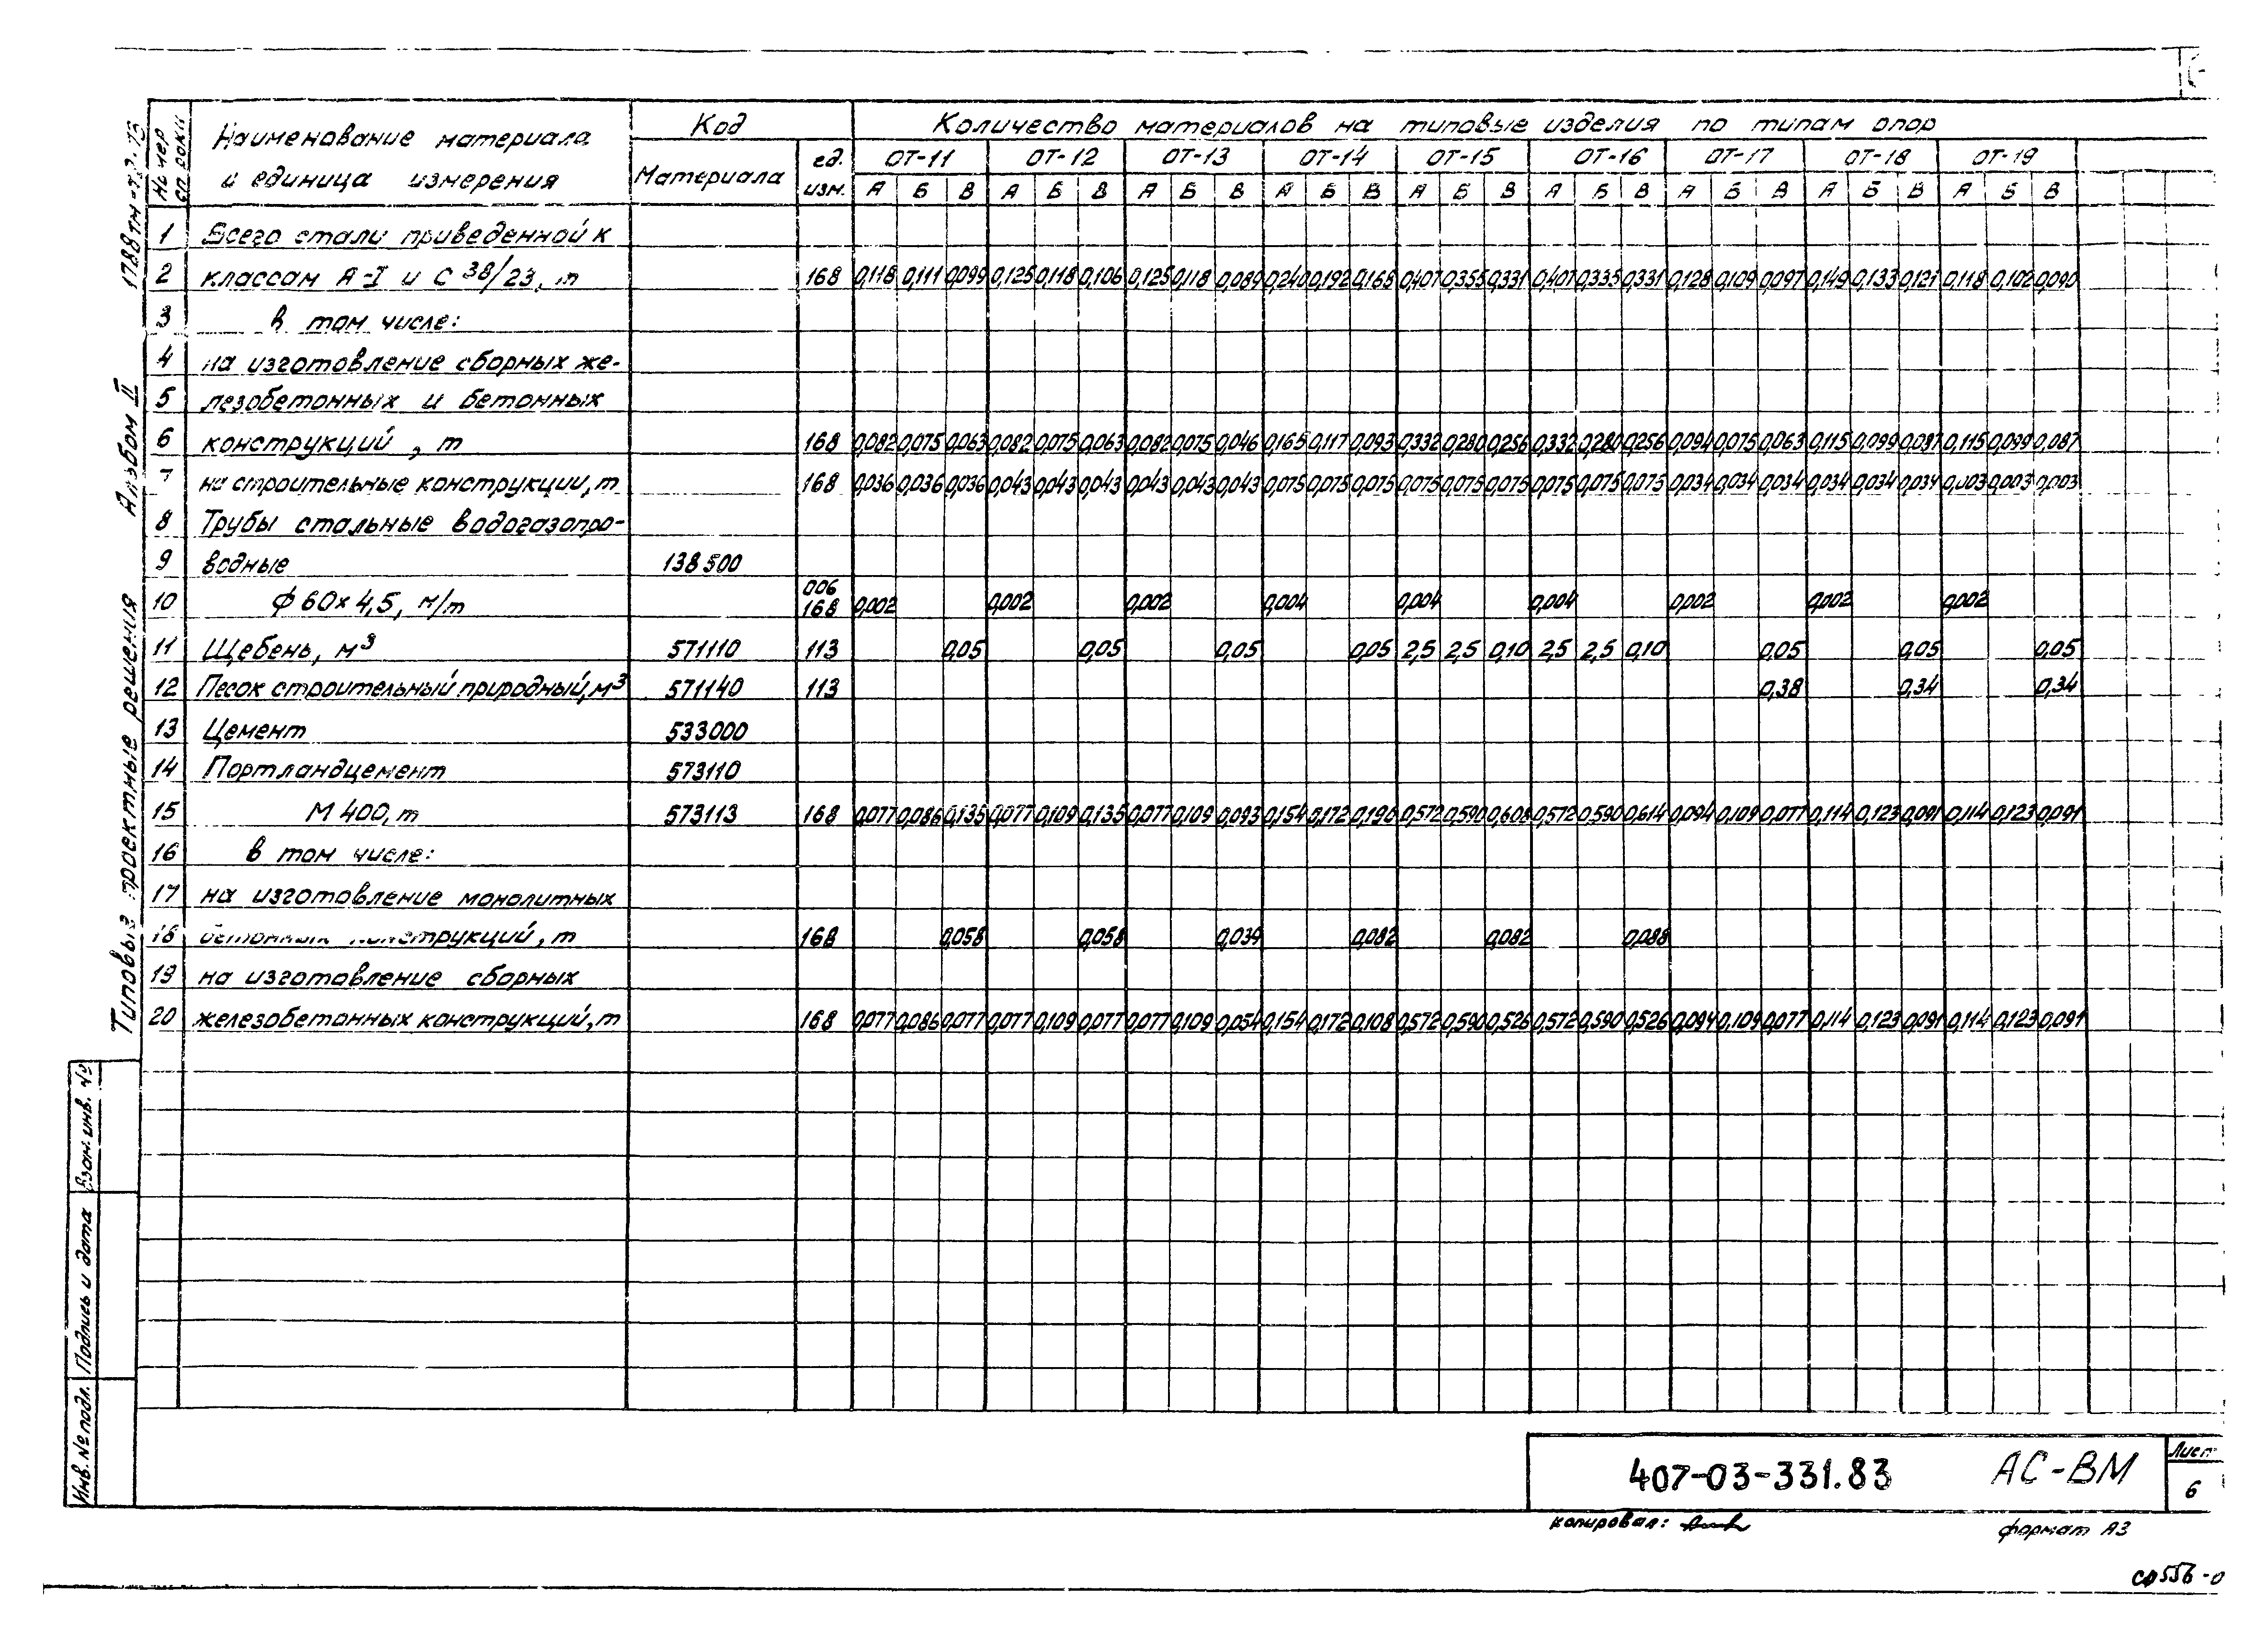 Номер строки
Наименование материала и единица измерения
Код
Количество материалов на типовые изделия по типам опор
Материала
ед. изм.
ОТ-11 ОТ-12 ОТ-13 ОТ-14 ОТ-15 ОТ-16 ОТ-17 ОТ-18 ОТ-19
А Б В А Б В А Б В А Б В А Б В А Б В А Б В А Б В А Б В
1 Всего стали приведенной к
2 классам А-I и С 38/23, т 168 0,118 0,111 0,099 0,125 0,118 0,106 0,125 0,118 0,089 0,240 0,192 0,168 0,407 0,355 0,331 0,407 0,335 0,331 0,128 0,109 0,097 0,149 0,133 0,121 0,118 0,102 0,090
3 в том числе:
4 на изготовление сборных же-
5 лезобетонных и бетонных
6 конструкций, т 168 0,082 0,075 0,063 0,082 0,075 0,063 0,082 0,075 0,046 0,165 0,117 0,093 0,332 0,280 0,256 0,332 0,280 0,256 0,094 0,075 0,063 0,115 0,099 0,087 0,115 0,099 0,087
7 на строительные конструкции, т 168 0,036 0,036 0,036 0,043 0,043 0,043 0,043 0,043 0,043 0,075 0,075 0,075 0,075 0,075 0,075 0,075 0,075 0,075 0,034 0,034 0,034 0,034 0,034 0,034 0,003 0,003 0,003
8 Трубы стальные водогазопро-
9 водные 138500
10 ф 60х4,5, м/т 006 168 0,002 0,002 0,002 0,004 0,004 0,004 0,002 0,002 0,002
11 Щебень, м³ 571110 113 0,05 0,05 0,05 0,05 2,5 2,5 0,10 2,5 2,5 0,10 0,05 0,05 0,05
12 Песок строительный природный, м³ 571140 113 0,38 0,34 0,34
13 Цемент 533000
14 Портландцемент 573110
15 М 400, т 573113 168 0,077 0,086 0,135 0,077 0,109 0,135 0,077 0,109 0,093 0,154 0,172 0,190 0,572 0,590 0,608 0,572 0,590 0,614 0,094 0,109 0,077 0,114 0,123 0,091 0,114 0,123 0,091
16 в том числе:
17 на изготовление монолитных
18 бетонных конструкций, т 168 0,058 0,058 0,039 0,082 0,082 0,088
19 на изготовление сборных
20 железобетонных конструкций, т 168 0,077 0,086 0,077 0,077 0,109 0,077 0,077 0,109 0,054 0,154 0,172 0,108 0,572 0,590 0,526 0,572 0,590 0,526 0,094 0,109 0,077 0,114 0,123 0,091 0,114 0,123 0,091
Типовые проектные решения Альбом II
Взам. инв. №
Подпись и дата
Инв. № подл.
407-03-331.83 АС-ВМ
Лист
6
копировал:
формат А3